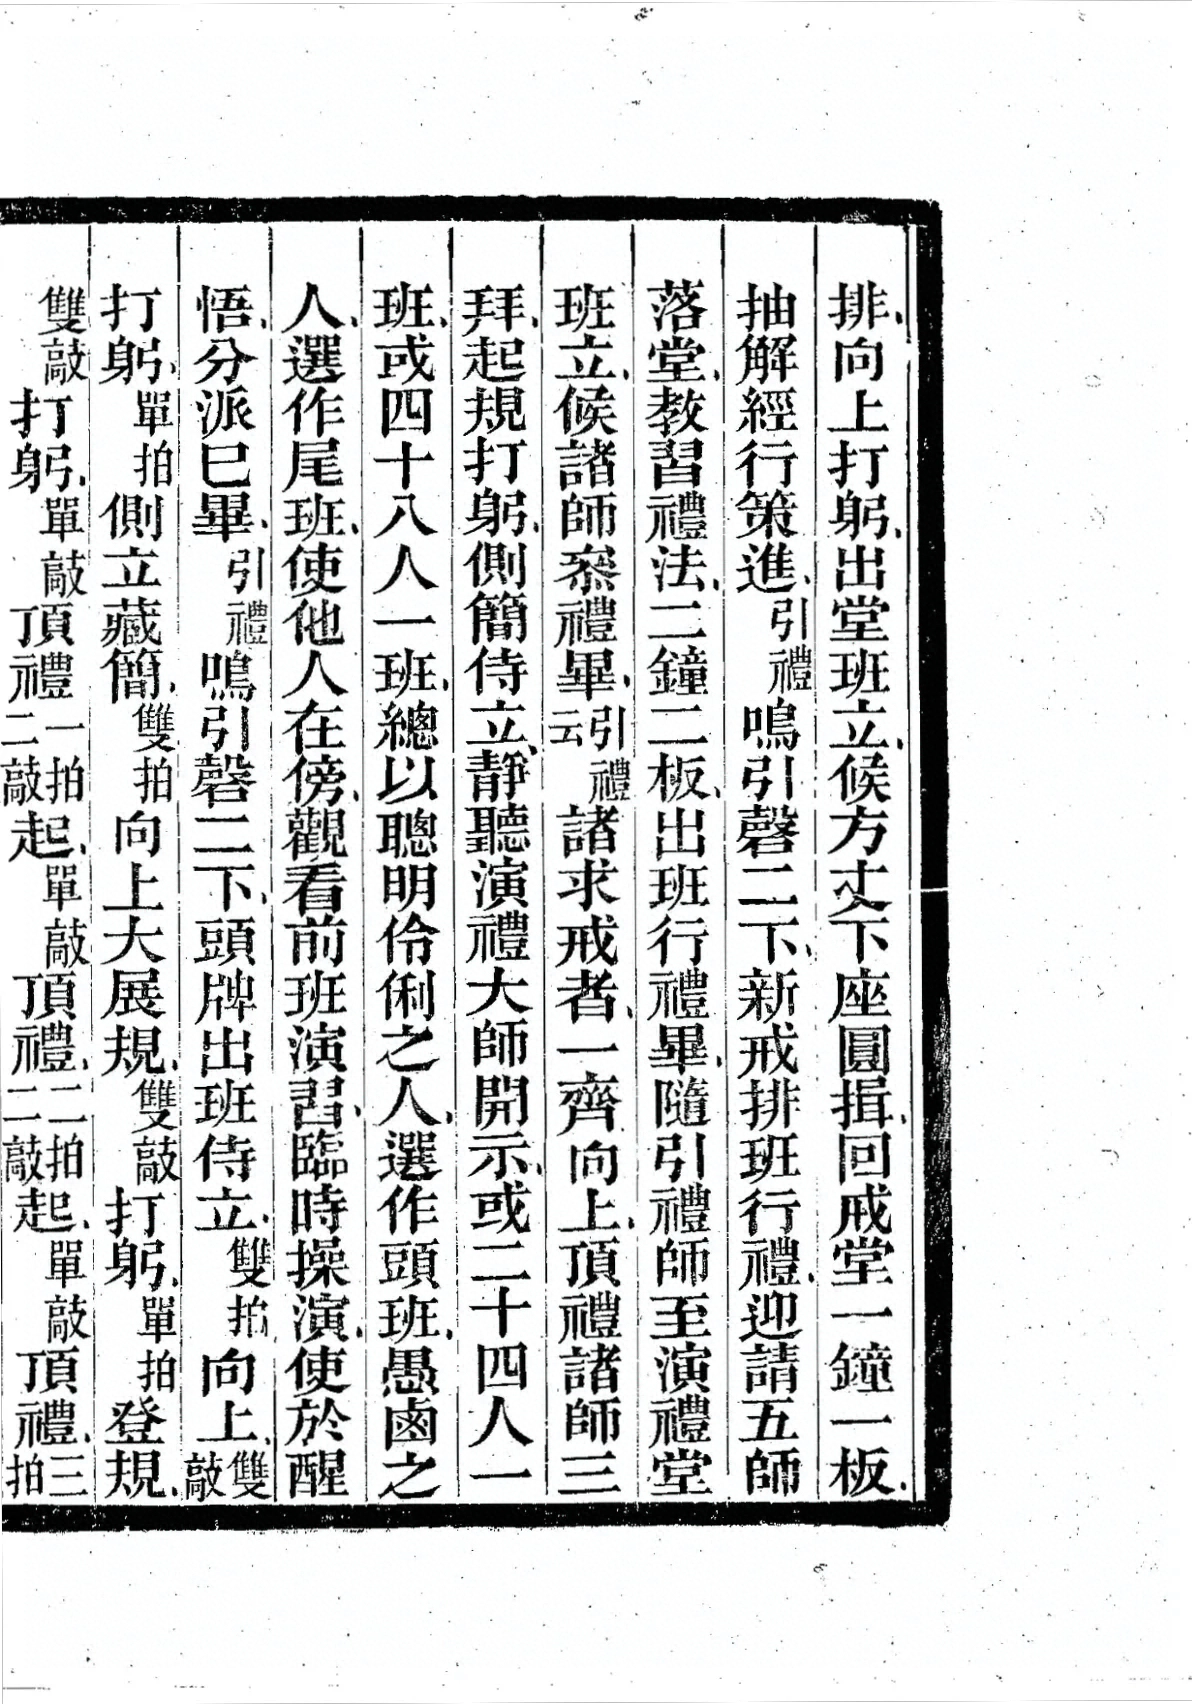 排、向上打躬、出堂班立、候方丈下座圓揖、回戒堂一鐘一板、
抽解經行策進、引禮鳴引磬二下、新戒排班行禮、迎請五師
落堂、教習禮法、二鐘二板、出班行禮畢、隨引禮師至演禮堂
班立、候諸師叅禮畢、引禮云諸求戒者、一齊向上、頂禮諸師三
拜、起規打躬、側簡侍立、靜聽演禮大師開示、或二十四人一
班、或四十八人一班、總以聰明伶俐之人、選作頭班、愚鹵之
人、選作尾班、使他人在傍、觀看前班演習、臨時操演、使於醒
悟、分派已畢、引禮鳴引磬二下、頭牌出班侍立、雙拍向上、雙敲
打躬、單拍側立藏簡、雙拍向上大展規、雙敲打躬、單拍登規、
雙敲打躬、單敲頂禮一拍二敲起、單敲頂禮、二拍二敲起、單敲頂禮、三拍